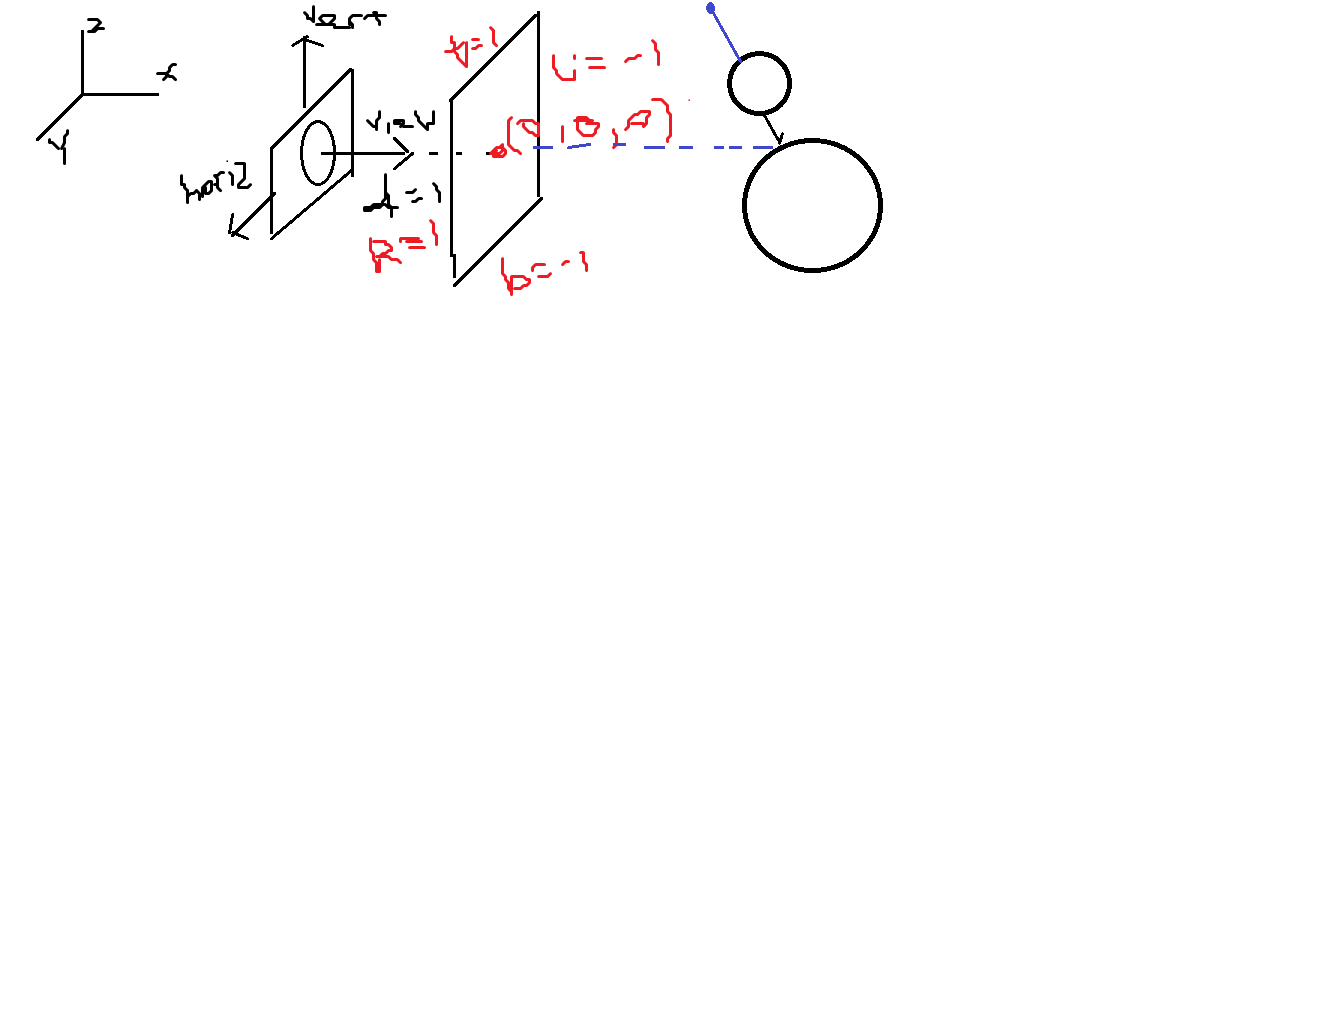 z
x
y
vert
horiz
view
d=1
t=1
L=-1
(0,0,0)
R=1
b=-1